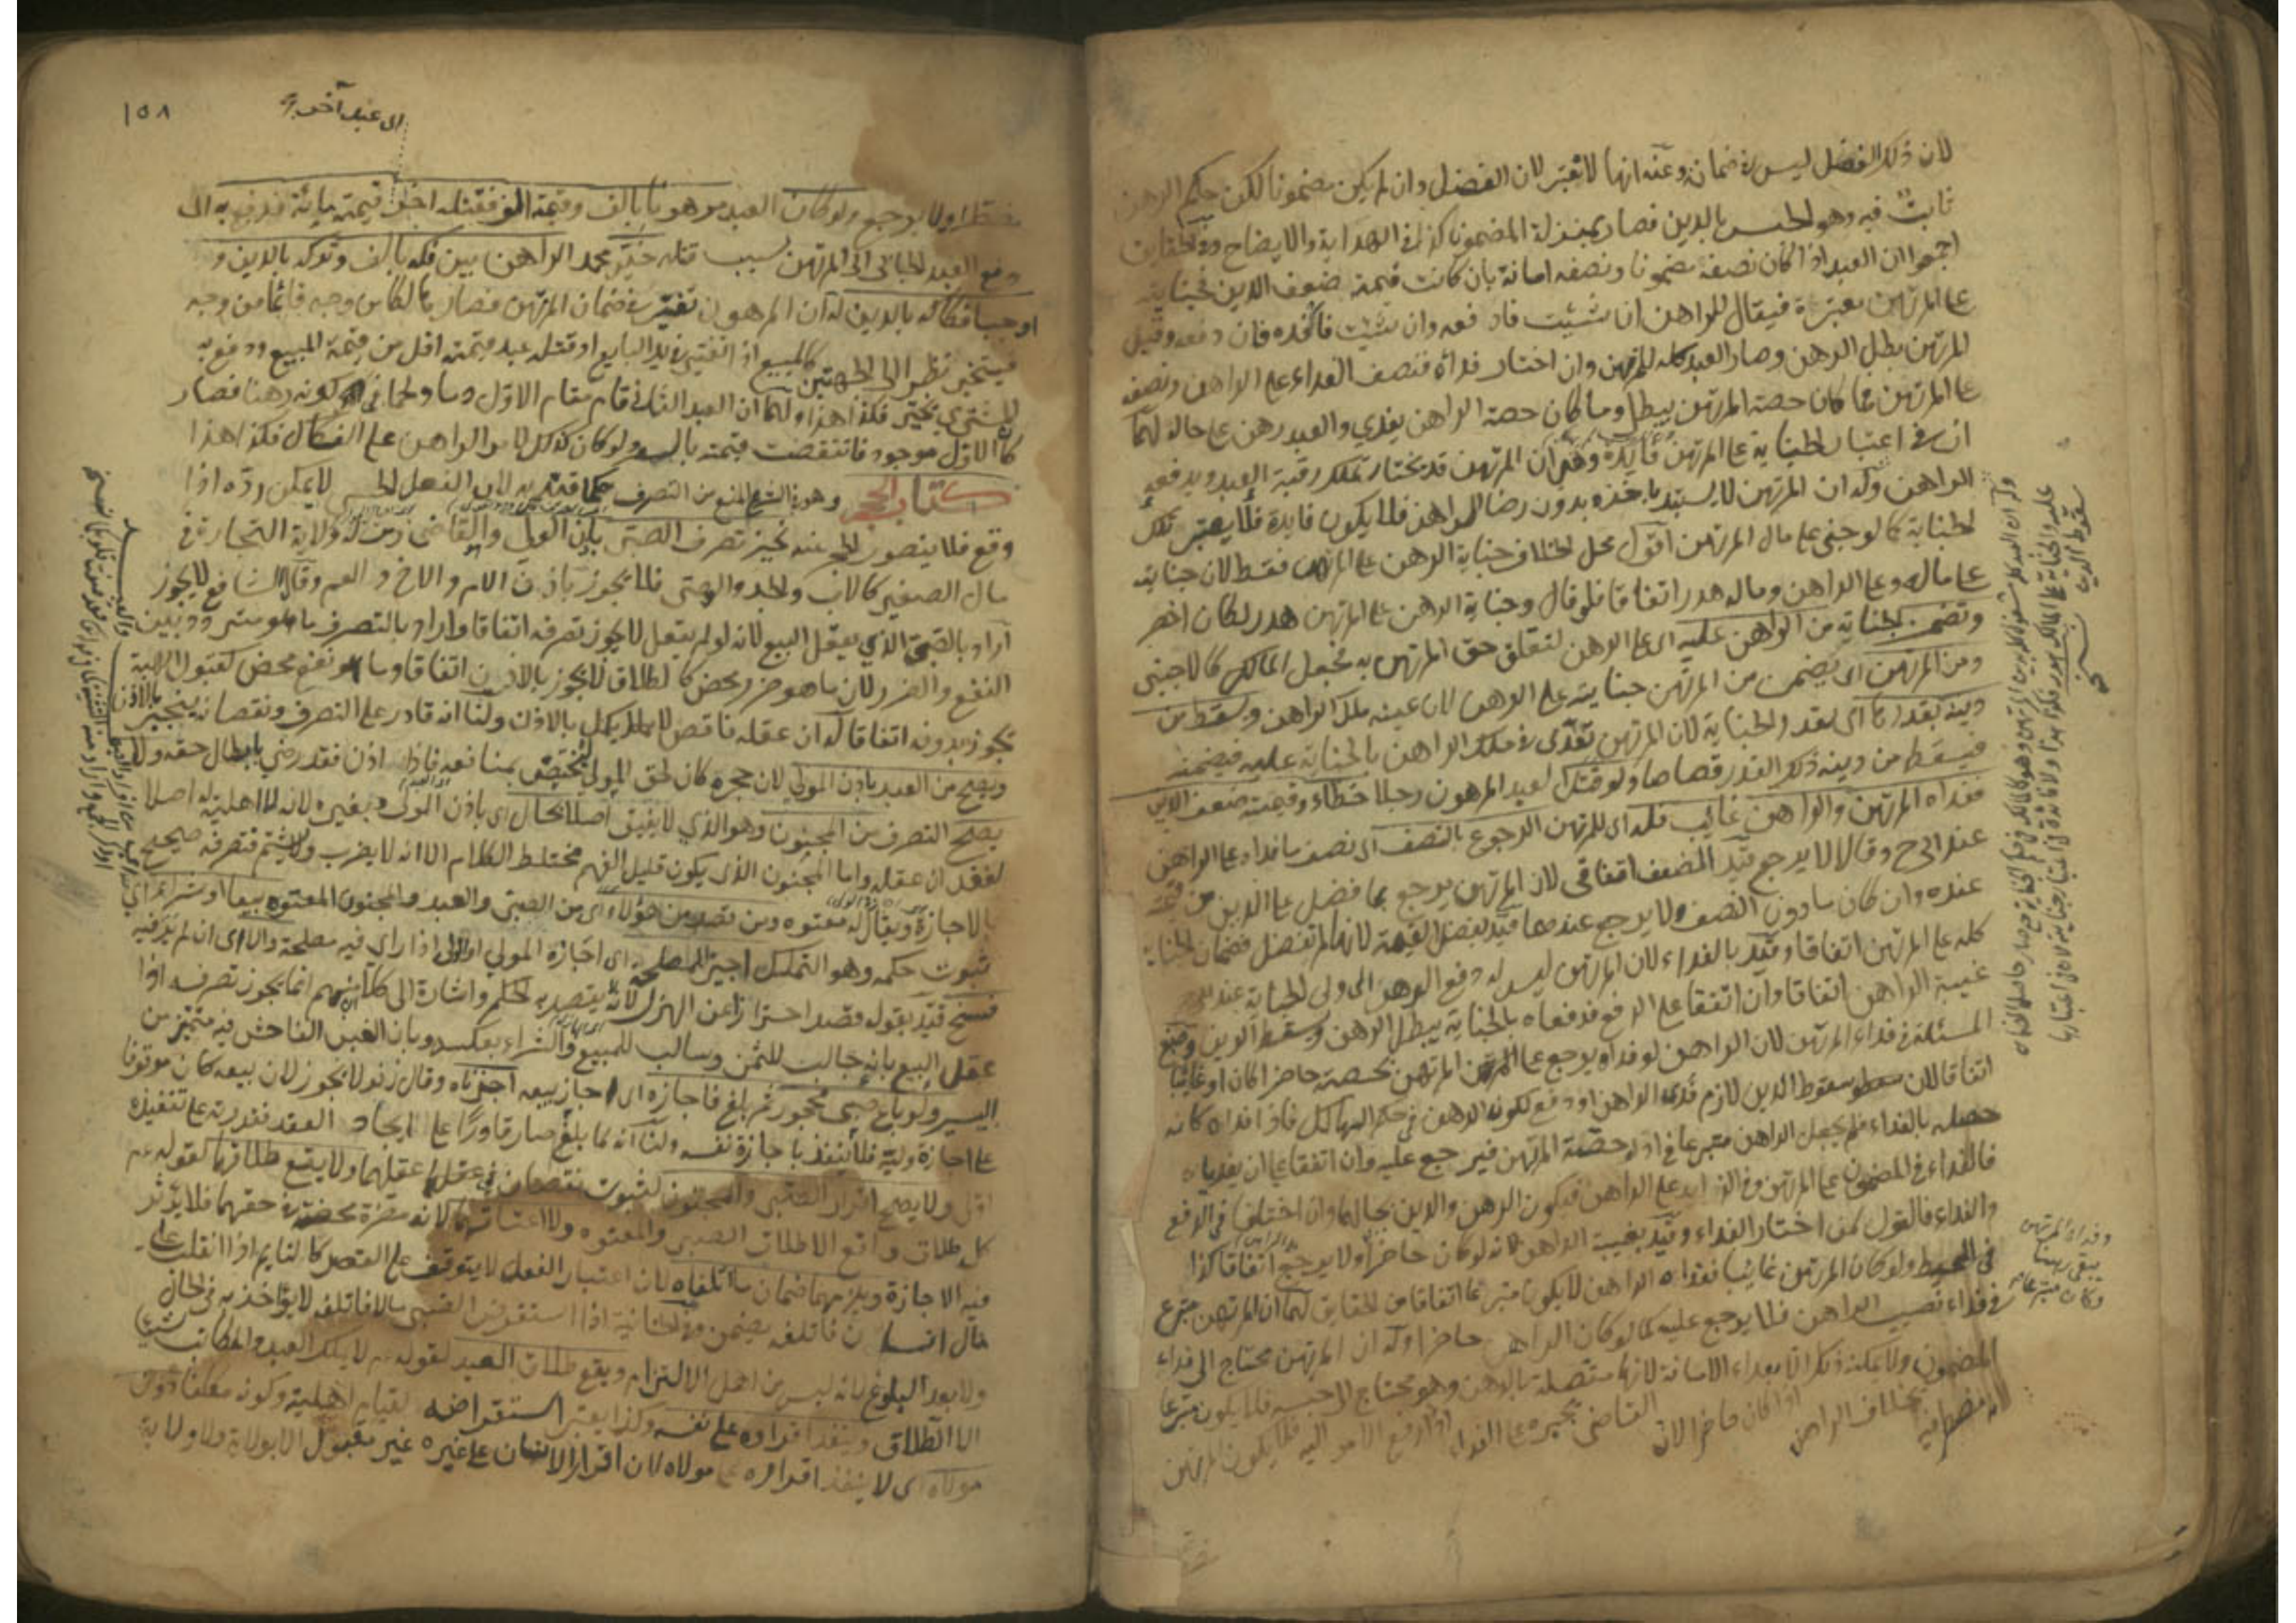 لان ذلك الفضل ليس في ضمانه وعنه انها لا تعتبر لان الفضل وان لم يكن مضمونا لكن حكم الرهن
ثابت فيه وهو الحبس بالدين فصار بمنزلة المضمون كذا في الهداية والايضاح وفي الحقايق
اجمعوا ان العبد اذا كان نصفه مضمونا ونصفه امانة بان كانت قيمته ضعف الدين فجنايته
على المرتهن معتبرة فيقال للراهن ان شئت فادفعه وان شئت فافده فان دفعه وقبل
المرتهن بطل الرهن وصار العبد كله للمرتهن وان اختار فداه فنصف الفداء على الراهن ونصفه
على المرتهن فما كان حصة المرتهن يبطل وما كان حصة الراهن يفدي والعبد رهن على حاله لهما
ان في اعتبار الجناية على المرتهن فائدة وهي ان المرتهن قد يختار تملك رقبة العبد ويدفعه
الراهن وله ان المرتهن لا يستبد باخذه بدون رضا الراهن فلا يكون فايدة فلا يعتبر تلك
الجناية كما لو جنى على مال المرتهن اقول محل الخلاف جناية الرهن على المرتهن فقط لان جنايته
على ماله وعلى الراهن وماله هدر اتفاقا فلو قال وجناية الرهن على المرتهن هدر لكان اخصر
وتضمن الجناية من الراهن عليه اى على الرهن لتعلق حق المرتهن به فجعل المالك كالاجنبي
ومن المرتهن اى يضمن من المرتهن جنايته على الرهن لان عينه ملك الراهن ويسقط من
دينه بقدرها اى بقدر الجناية لان المرتهن تعدى في ملك الراهن بالجناية عليه فيضمنه
فيسقط من دينه ذلك القدر قصاصا ولو قتل العبد المرهون رجلا خطاء وقيمته ضعف الدين
ففداه المرتهن والراهن غائب فله اى للمرتهن الرجوع بالنصف اى نصف ما فداه على الراهن
عند ابي ح وقالا لا يرجع قيد الضعف اتفاقي لان المرتهن يرجع بما فضل على الدين من قيمته
عنده وان كان ما دون النصف ولا يرجع عندهما قيد بفضل القيمة لانها لو لم تفضل فضمان الجناية
كله على المرتهن اتفاقا وقيد بالفداء لان المرتهن ليس له دفع الرهن الى ولي الجناية عند
غيبة الراهن اتفاقا وان اتفقا على الدفع فدفعاه بالجناية يبطل الرهن ويسقط الدين وضع
المسئلة في فداء المرتهن لان الراهن لو فداه يرجع على المرتهن بحصته حاضرا كان او غايبا
اتفاقا لان سقوط الدين لازم فدى الراهن او دفع لكونه الرهن في حكم الهالك فاذا فداه كانه
حصله بالفداء فلم يجعل الراهن متبرعا في اداء حصة المرتهن فيرجع عليه وان اتفقا على ان يفدياه
فالفداء في المضمون على المرتهن وفي الزايد على الراهن فيكون الرهن والدين بحالهما وان اختلفا في الدفع
والفداء فالقول لمن اختار الفداء وقيد بغيبة الراهن لانه لو كان حاضرا لا يرجع اتفاقا كذا
في المحيط ولو كان المرتهن غايبا ففداه الراهن لا يكون متبرعا اتفاقا من الحقايق لهما ان المرتهن متبرع
في فداء نصيب الراهن فلا يرجع عليه كما لو كان الراهن حاضرا وله ان المرتهن محتاج الى فداء
المضمون ولا يمكنه ذلك الا بفداء الامانة لانها متصلة بالرهن وهو محتاج الى حبسه فلا يكون متبرعا
لانه مضطر فيه بخلاف الراهن اذا كان حاضرا لان القاضي يجبره على الفداء اذا رفع الامر اليه فلا يكون المرتهن
١٥٨
الى عبد آخر
مضطرا ولا يرجع ولو كان العبد مرهونا بالف وقيمته الف فقتله اخر قيمته مائة فدفع به اى
دفع العبد الجاني الى المرتهن بسبب قتله خير محمد الراهن بين فكه بالف وتركه بالدين و
اوجبا فكاكه بالدين له ان المرهون تغير في ضمان المرتهن فصار هالكا من وجه قائما من وجه
فيتخير نظرا الى الجهتين كالمبيع اذا انتقص في يد البايع او قتله عبد قيمته اقل من قيمة المبيع ودفع به
المشتري يخير فكذا هذا ولهما ان العبد الثاني قام مقام الاول وساوالحما في كونه رهنا فصار
كان الاول موجود فانتقصت قيمته بالسعر ولو كان كذلك لامر الراهن على الفكاك فكذا هذا
كتاب الحجر وهو في الشرع المنع من التصرف حكما قيد به لان الفعل الحسي لا يمكن رده اذا
وقع فلا يتصور الحجر عنه نجيز تصرف الصبي باذن الولي والقاضي ومن له ولاية التجارة في
مال الصغير كالاب والجد والوصي فلا يجوز باذن الام والاخ والعم وقال الشافعي لا يجوز
اراد بالصبي الذي يعقل البيع لانه لو لم يعقل لا يجوز تصرفه اتفاقا واراد بالتصرف ما هو متردد بين
النفع والضرر لان ما هو ضرر محض كالطلاق لا يجوز بالاذن اتفاقا وما هو نفع محض كقبول الهبة
يجوز بدونه اتفاقا له ان عقله ناقص لا يكمل بالاذن ولنا انه قادر على التصرف ونقصانه ينجبر بالاذن
ويصح من العبد باذن المولى لان حجره كان لحق المولى ليختص بمنافعه فاذا اذن فقد رضي بابطال حقه ولا
يصح التصرف من المجنون وهو الذي لا يفيق اصلا بحال اى باذن المولى وبغيره لانه لا اهلية له اصلا
لفقدان عقله واما المجنون الذي يكون قليل الفهم مختلط الكلام الا انه لا يضرب ولا يشتم فتصرفه صحيح
بالاجازة ويقال له معتوه ومن قصد من هؤلاء اى من الصبي والعبد والمجنون المعتوه بيعا او شراء اى
ثبوت حكمه وهو التملك اجيز للمصلحة اى اجازه المولى او الولي اذا راى فيه مصلحة والا اى ان لم ير فيه
فسخ قيد بقوله قصد احترازا عن الهزل لانه لا يقصد به الحكم واشارة الى ان كلا منهم انما يجوز تصرفه اذا
عقل البيع بانه جالب للثمن وسالب للمبيع والشراء بعكسه وبان الغبن الفاحش فيه متميز من
اليسير ولو باع صبي محجور ثم بلغ فاجازه اى اجاز بيعه اجزناه وقال زفر لا يجوز لان بيعه كان موقوفا
على اجازة وليه فلا ينفذ باجازة نفسه ولنا انه لما بلغ صار قادرا على ايجاد العقد فقدرته على تنفيذه
اولى ولا يصح اقرار الصبي والمجنون لثبوت نقصان في عقلهما ولا يقع طلاقهما لقوله عم
كل طلاق واقع الا طلاق الصبي والمعتوه ولا اعتاقهما لانه مضرة محضة في حقهما فلا يؤثر
فيه الاجازة ويلزمهما ضمان ما اتلفاه لان اعتبار الفعل لا يتوقف على القصد كالنايم اذا انقلب على
مال انسان فاتلفه يضمن وفي الخانية اذا استقرض الصبي مالا فاتلفه لا يؤاخذ به في الحال
ولا بعد البلوغ لانه ليس من اهل الالتزام ويقع طلاق العبد لقوله عم لا يملك العبد والمكاتب شيئا
الا الطلاق وينفذ اقراره على نفسه وكذا يعتبر استقراضه لقيام اهليته وكونه مكلفا دون
مولاه اى لا ينفذ اقراره على مولاه لان اقرار الانسان على غيره غير مقبول الا بولاية ولا ولاية